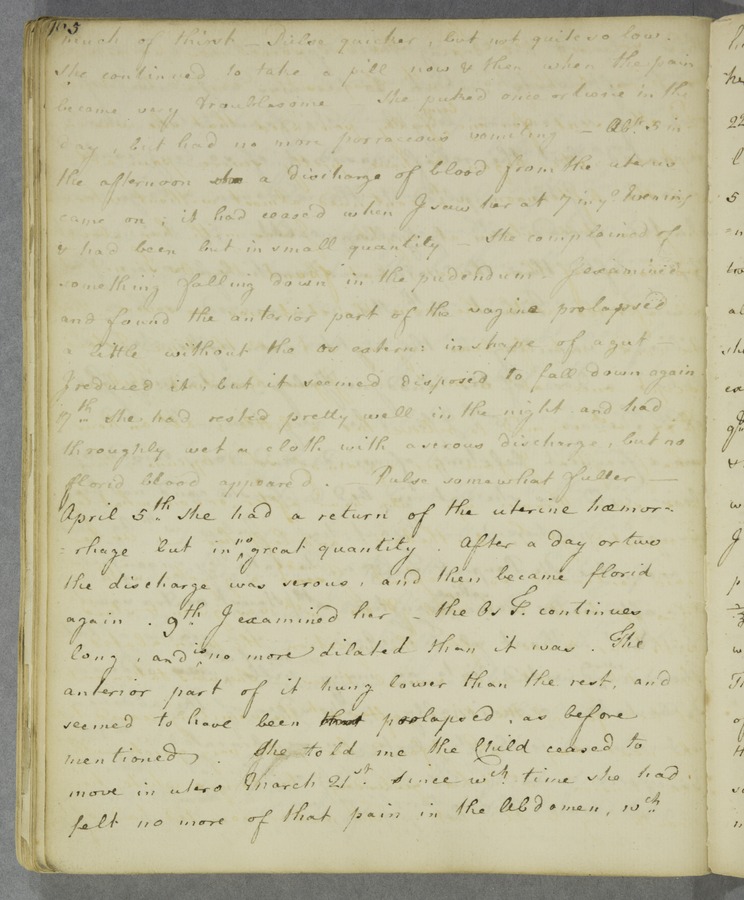 105
much of thirst — Pulse quicker, but not quite so low.
She continued to take a pill now & then when the pain
became very troublesome — She puked once or twice in the
day, but had no more porraceous vomiting — 5 in
the afternoon a discharge of blood from the uterus
came on; it had ceased when I saw her at 7 in yᵉ Evening
& had been but in small quantity — She complained of
something falling down in the pudendum — I examined
and found the anterior part of the vagina prolapsed
a little without the os extern: in shape of a gut —
I reduced it; but it seemed disposed to fall down again
7th. She had rested pretty well in the night and had
throughly wet a cloth with a serous discharge, but no
florid blood appeared. Pulse somewhat fuller —
April 5th. She had a return of the uterine hæmor-
:rhage but in no great quantity. After a day or two
the discharge was serous, and then became florid
again. 9th I examined her — the Os T. continues
long, and is no more dilated than it was. The
anterior part of it hung lower than the rest, and
seemed to have been that prolapsed, as before
mentioned. She told me the Child ceased to
move in utero March 21st. Since wch. time she had
felt no more of that pain in the Abdomen, wch.